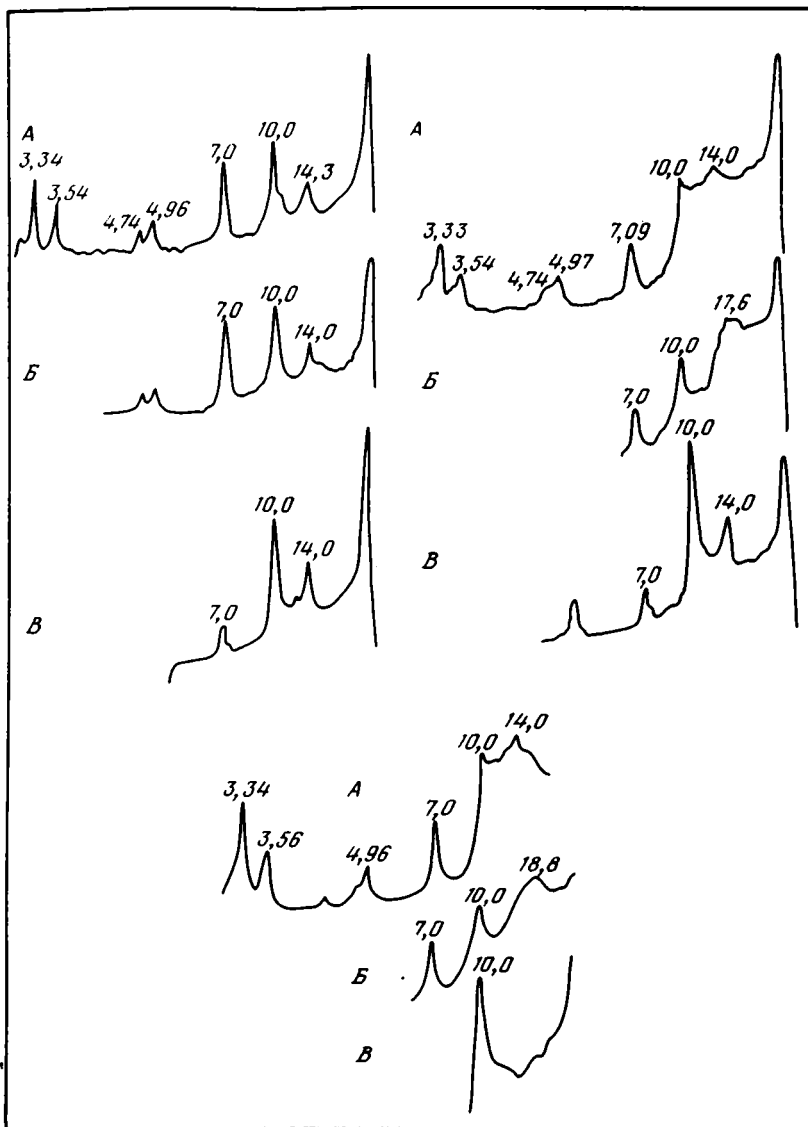 А
3,34
3,54
4,74
4,96
7,0
10,0
14,3
Б
7,0
10,0
14,0
В
7,0
10,0
14,0
А
3,33
3,54
4,74
4,97
7,09
10,0
14,0
Б
7,0
10,0
17,6
В
7,0
10,0
14,0
А
3,34
3,56
4,96
7,0
10,0
14,0
Б
7,0
10,0
18,8
В
10,0